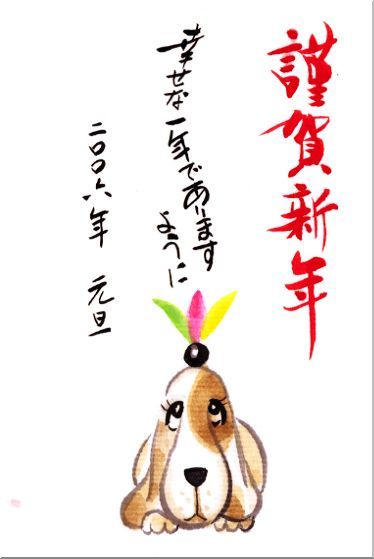 謹賀新年
幸せな一年であります
ように
二〇〇六年 元旦